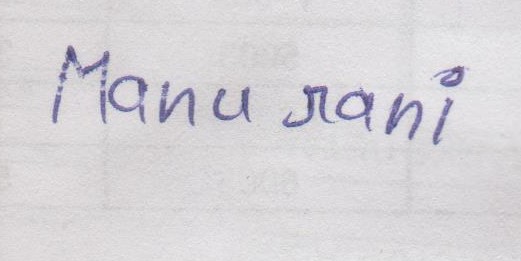 Manu rani